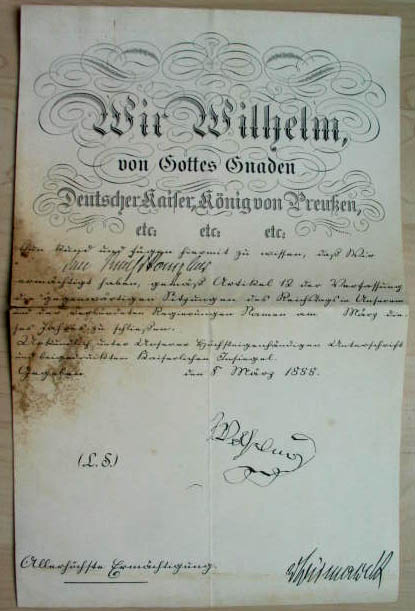 Wir Wilhelm,
von Gottes Gnaden
Deutscher Kaiser, König von Preußen,
etc: etc: etc:
Thun kund und fügen hiermit zu wissen, daß Wir
den Reichskanzler
ermächtigt haben, gemäß Artikel 12 der Verfassung
die gegenwärtigen Sitzungen des Reichstags in Unserem
und der verbündeten Regierungen Namen am März die-
ses Jahres zu schließen.
Urkundlich unter Unserer Höchsteigenhändigen Unterschrift
und beigedrucktem Kaiserlichen Insiegel.
Gegeben den 8 März 1888.
Wilhelm
(L. S.)
Allerhöchste Ermächtigung.
v Bismarck